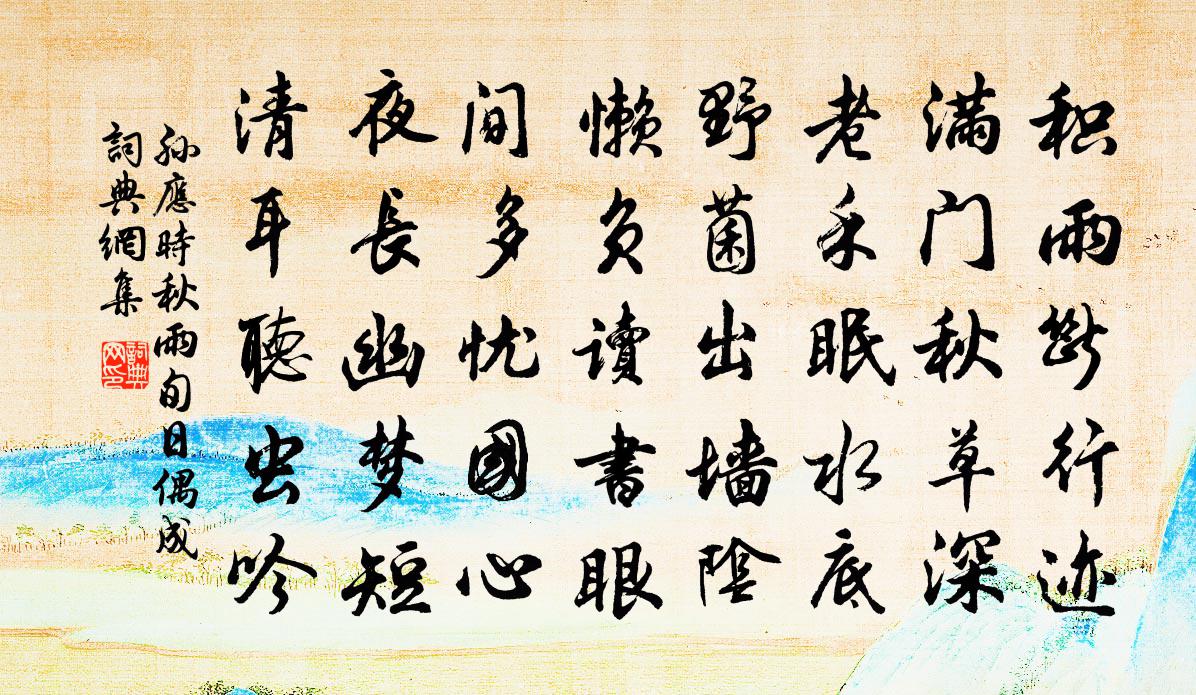 积雨断行迹
满门秋草深
老禾眠水底
野菌出墙阴
懒负读书眼
间多忧国心
夜长幽梦短
清耳听虫吟
孙应時秋雨旬日偶成
詞典網集
詞典網印